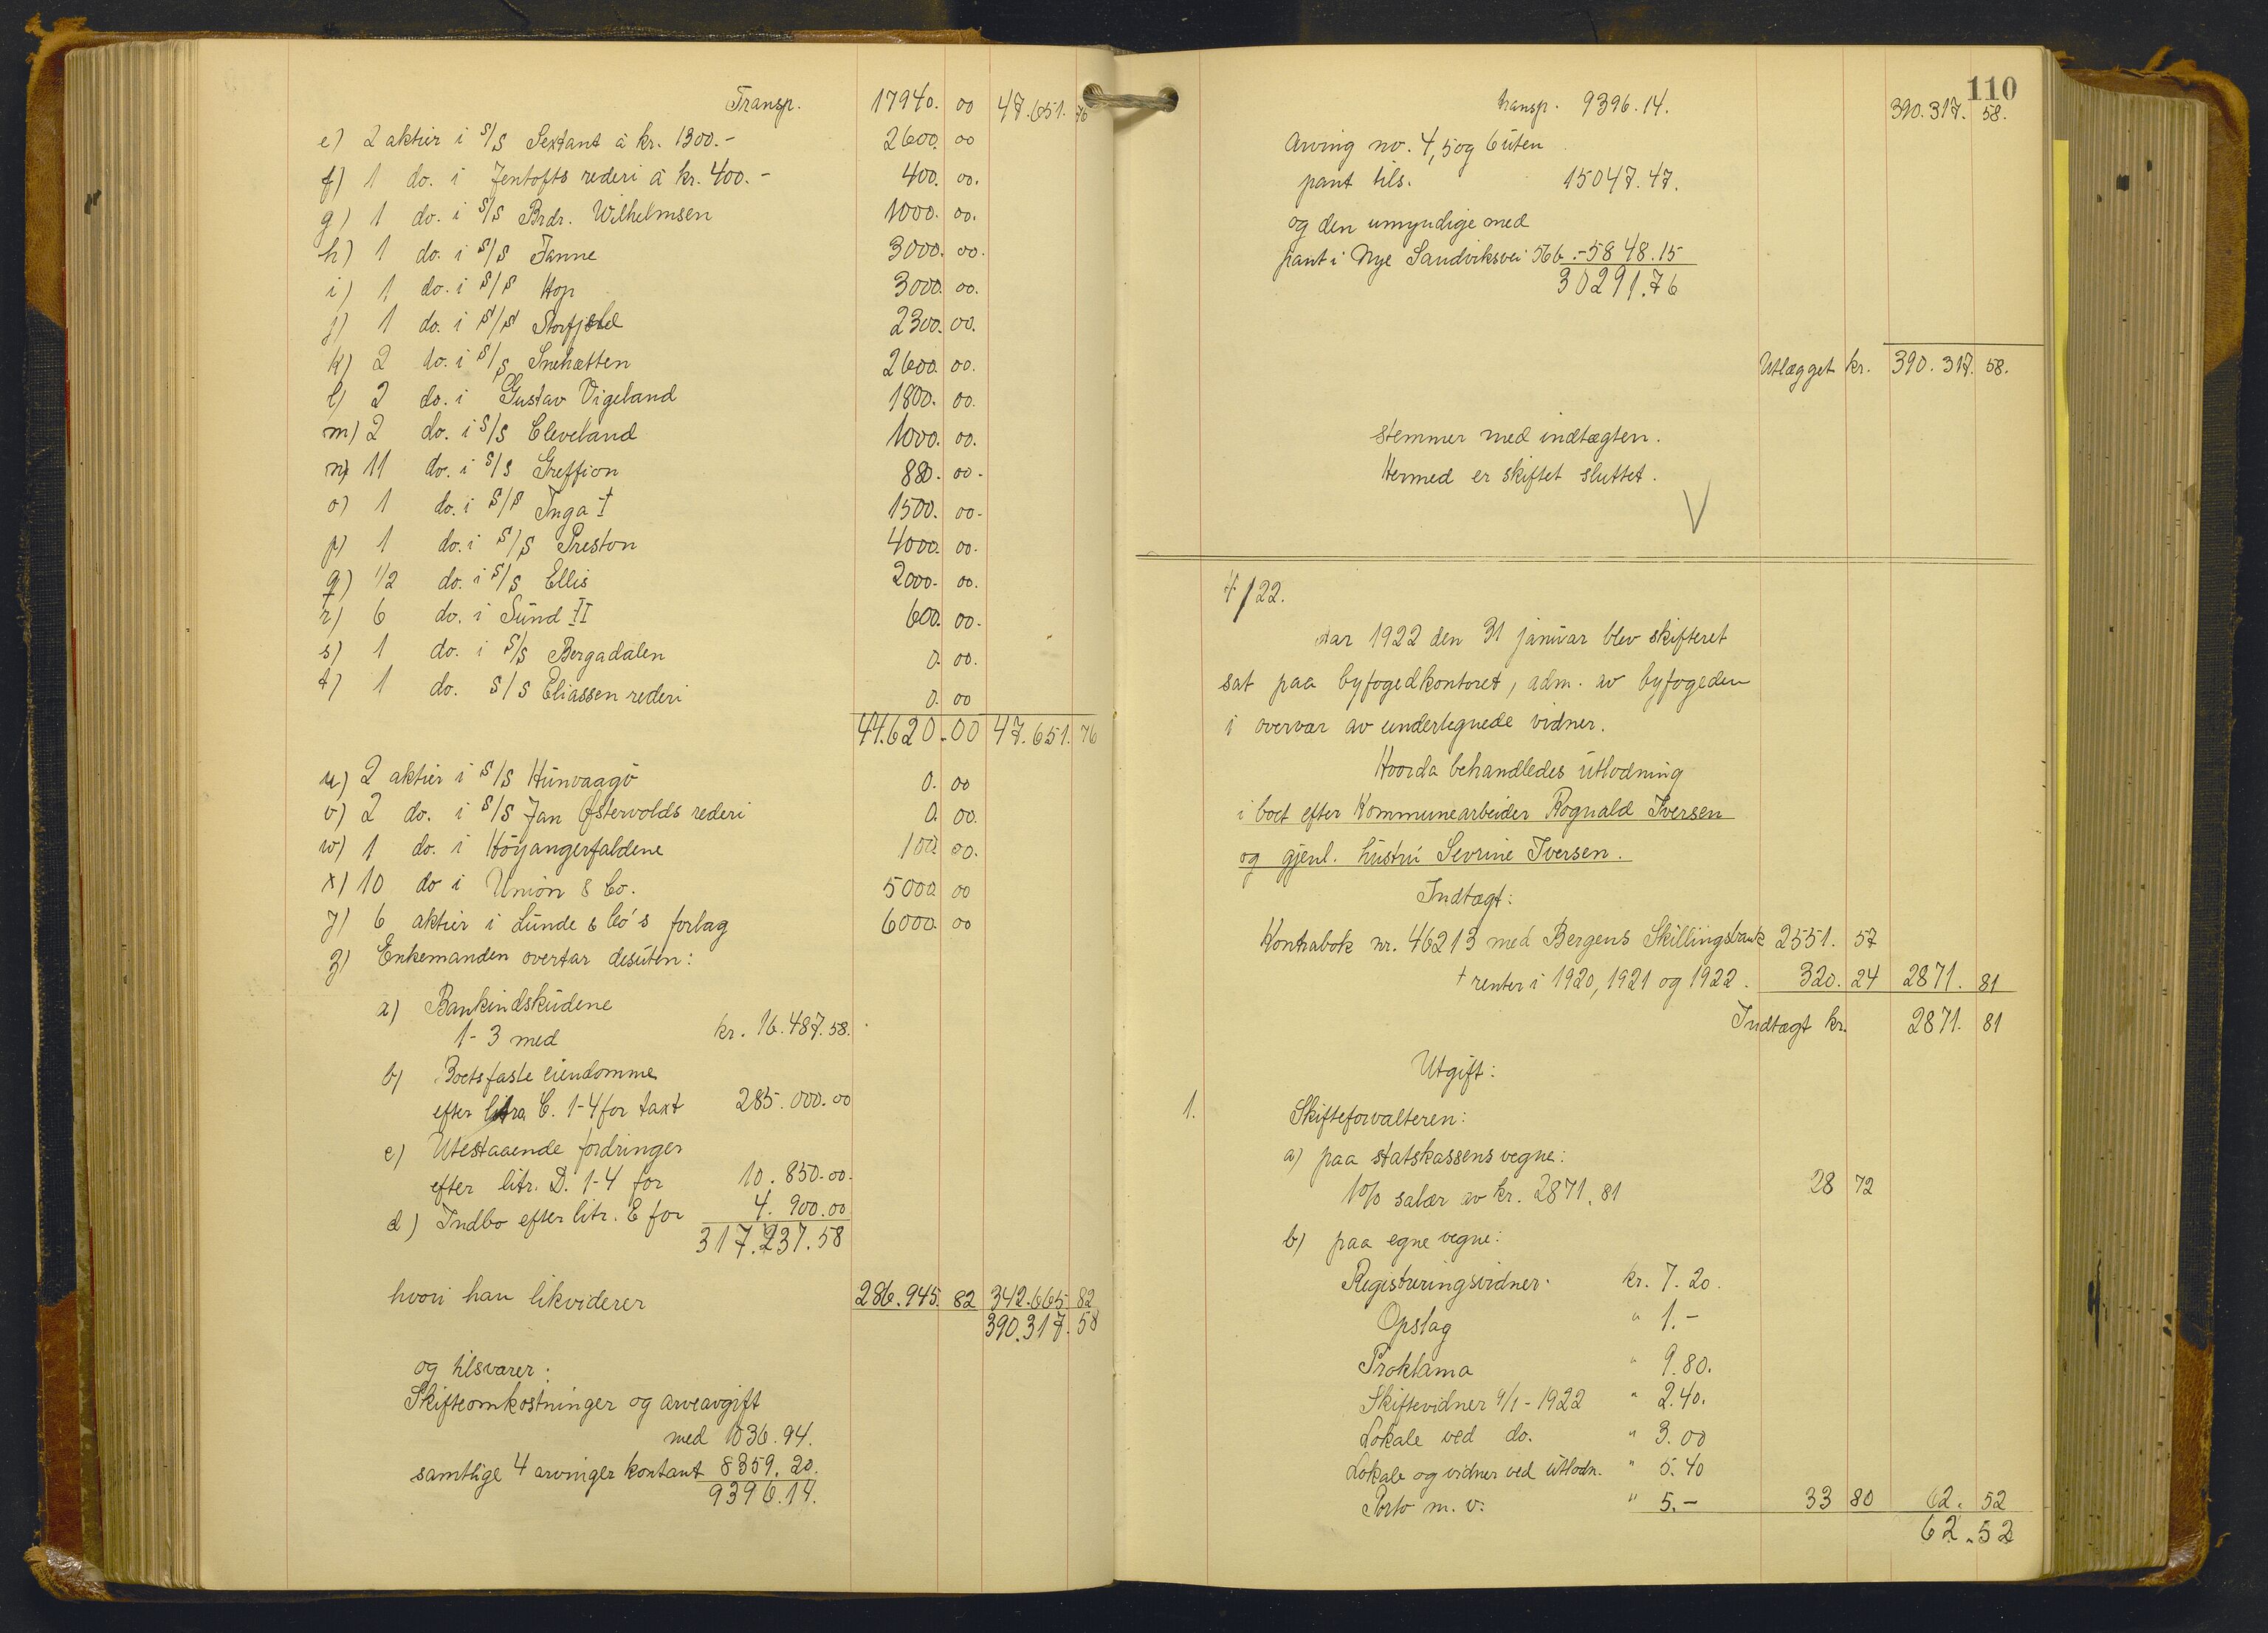 Transp. 17940. 00 47.651. 76
e) 2 aktier i S/S Sextant à kr. 1300.- 2600. 00
f) 1 do. i Jentofts rederi à kr. 400.- 400. 00.
g) 1 do. i S/S Brdr. Wilhelmsen 1000. 00.
h) 1 do. i S/S Janne 3000. 00.
i) 1 do. i S/S Hop 3000. 00.
j) 1 do. i S/S 2300. 00.
k) 2 do. i S/S Snehætten 2600. 00.
l) 2 do. i Gustav Vigeland 1800. 00.
m) 2 do. i S/S Cleveland 1000. 00.
n) 11 do. i S/S Greffion 880. 00-
o) 1 do. i S/S Inga I 1500. 00-
p) 1 do. i S/S Preston 4000. 00.
q) 1/2 do. i S/S Ellis 2000- 00.
r) 6 do. i Sund II 600. 00-
s) 1 do. i S/S Bergadalen 0. 00.
t) 1 do. S/S Eliassen rederi 0. 00
44.620.00 47.651. 76
u) 2 aktier i S/S Hunvaagö 0. 00
v) 2 do. i S/S Jan Østervolds rederi 0. 00.
w) 1 do. i Höyangerfaldene 100. 00.
x) 10 do i Union & Co. 5000. 00
y) 6 aktier i Lunde & Co's forlag 6000. 00
z) Enkemanden overtar desuten:
a) Bankindskudene
1-3 med kr. 16.487.58.
b) Boets faste eiendomme
efter litra C. 1-4 for taxt 285.000.00
c) Utestaaende fordringer
efter litr. D. 1-4 for 10.850.00.
d) Indbo efter litr. E for 4.900.00
317.237.58
hvori han likviderer 286.945. 82 342.665. 82
390.317. 58
og tilsvarer:
Skifteomkostninger og arveavgift
med 1036.94.
samtlige 4 arvinger kontant 8359.20.
9396.14.
110
transp. 9396.14. 390.317. 58.
Arving no. 4, 5 og 6 uten
pant tils. 15047.47.
og den umyndige med
pant i Nye Sandviksvei 56b.- 5848.15
30291.76
Utlægget kr. 390.317. 58.
stemmer med indtægten.
Hermed er skiftet sluttet.
4/22.
Aar 1922 den 31 januar blev skifteret
sat paa byfogedkontoret, adm. av byfogeden
i overvær av undertegnede vidner.
Hvorda behandledes utlodning
i boet efter Kommunearbeider Rognald Iversen
og gjenl. hustru Sevrine Iversen.
Indtægt:
Kontrabok nr. 46213 med Bergens Skillingsbank 2551. 57
+ renter i 1920, 1921 og 1922. 320. 24 2871. 81
Indtægt kr. 2871. 81
Utgift:
1. Skifteforvalteren:
a) paa statskassens vegne:
1% salær av kr. 2871.81 28 72
b) paa egne vegne:
Registreringsvidner. kr. 7.20.
Opslag " 1.-
Proklama " 9.80.
Skiftevidner 9/1-1922 " 2.40.
Lokale ved do. " 3.00
Lokale og vidner ved utlodn. " 5.40
Porto m. v. " 5.- 33 80 62. 52
62.52